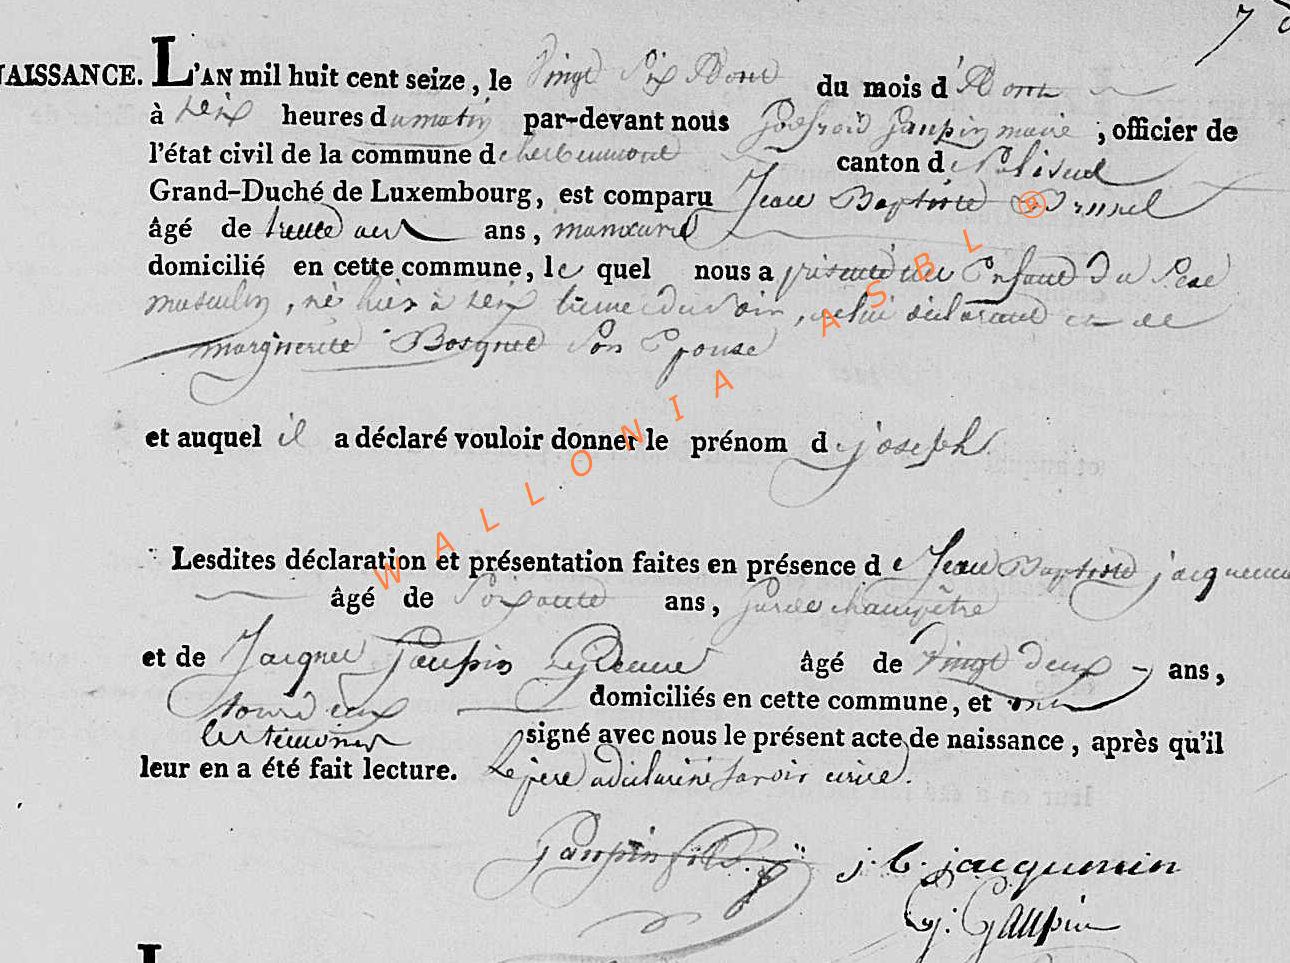 7
NAISSANCE. L'AN mil huit cent seize, le Vingt Six Aout du mois d'Aout
à Seix heures du matin par-devant nous Godfroid Gaupin maire, officier de
l'état civil de la commune de herbeumont canton de Paliseul
Grand-Duché de Luxembourg, est comparu Jean Baptiste Brunel
âgé de trente ans, manœuvre
domicilié en cette commune, le quel nous a présenté un Enfant du Sexe
masculin, né hier à seix heure du Soir, de lui déclarant et de
marguerite Bosquet Son Epouse
et auquel il a déclaré vouloir donner le prénom de joseph.
Lesdites déclaration et présentation faites en présence de Jean Baptiste jacquemin
âgé de Soixante ans, garde champêtre
et de Jacques Gaupin Le Jeune âgé de Vingt deux ans,
domiciliés en cette commune, et ont
les témoins signé avec nous le présent acte de naissance, après qu'il
leur en a été fait lecture. Le père a déclaré ne savoir écrire.
Gaupin fils. j. b. jacquemin
G. Gaupin
L
WALLONIA ASBL ®